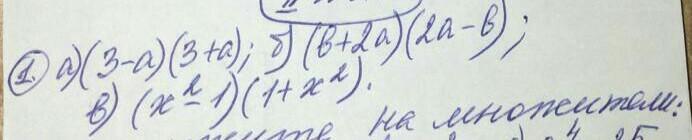 1. а) (3-а)(3+а); б) (в+2а)(2а-в);
в) (x²-1)(1+x²).
на множители: